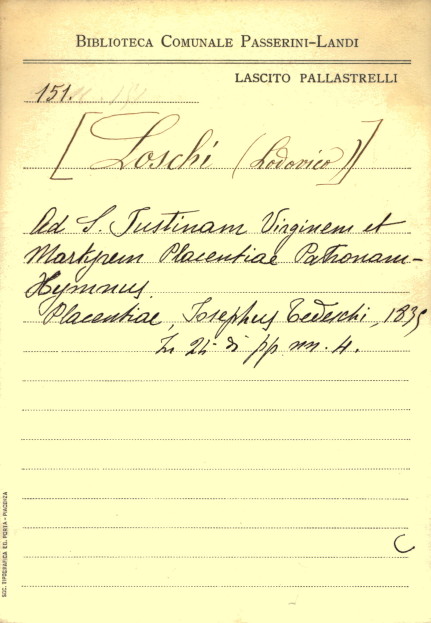 BIBLIOTECA COMUNALE PASSERINI-LANDI
LASCITO PALLASTRELLI
151.
[Loschi (Lodovico)]
Ad S. Justinam Virginem et
Martyrem Placentiae Patronam-
Hymnus.
Placentiae, Josephus Tedeschi, 1835
In 24° di pp. nn. 4.
C
SOC. TIPOGRAFICA ED. PORTA - PIACENZA